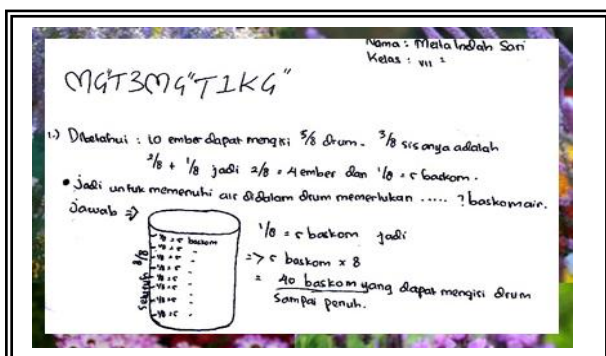 Nama : Meila Indah Sari
Kelas : VII ²
MG"T3MG"T1KG"
1.) Diketahui : 10 ember dapat mengisi 5/8 drum. 3/8 sisanya adalah
2/8 + 1/8 jadi 2/8 = 4 ember dan 1/8 = 5 baskom.
• Jadi untuk memenuhi air didalam drum memerlukan ..... ? baskom air.
Jawab =>
Sempuh 8/8
1/8 = 5 baskom
1/8 = 5 "
1/8 = 5 "
1/8 = 5 "
1/8 = 5 "
1/8 = 5 "
1/8 = 5 "
1/8 = 5 "
1/8 = 5 baskom jadi
=> 5 baskom x 8
= 40 baskom yang dapat mengisi drum
sampai penuh.